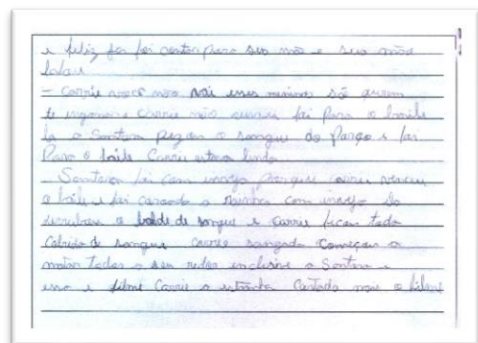 e feliz foi foi contar para sua mãe e sua mãe
falou
– Carrie você não vai esses meninos só querem
te enganar e Carrie não ouviu foi para o baile
la a Santara pegou o sangue do Porco e foi
Para o baile Carrie estava linda
– Santara foi com inveja porque Carrie venceu
o baile e foi coroada a rainha com inveja
derrubou o balde de sangue e Carrie ficou toda
Cobrida de sangue Carrie zangada começou a
matar todos a seu redor inclusive a Santara e
esse e filme Carrie a estranha Contado mais o filme